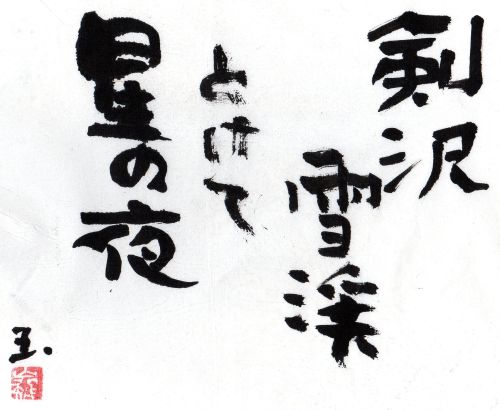 剣沢
雪渓
とけて
星の夜
玉.